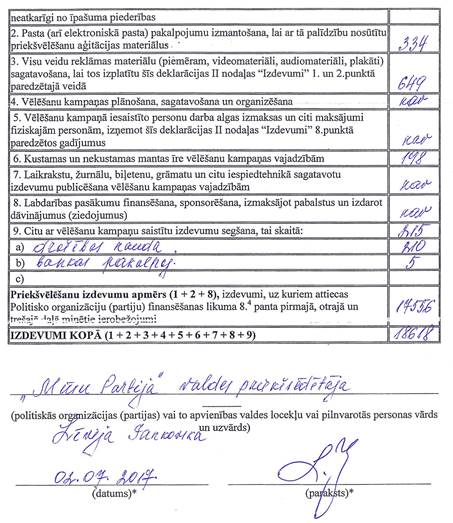 neatkarīgi no īpašuma piederības
2. Pasta (arī elektroniskā pasta) pakalpojumu izmantošana, lai ar tā palīdzību nosūtītu
priekšvēlēšanu aģitācijas materiālus 334
3. Visu veidu reklāmas materiālu (piemēram, videomateriāli, audiomateriāli, plakāti)
sagatavošana, lai tos izplatītu šīs deklarācijas II nodaļas “Izdevumi” 1. un 2.punktā
paredzētajā veidā 649
4. Vēlēšanu kampaņas plānošana, sagatavošana un organizēšana nav
5. Vēlēšanu kampaņā iesaistīto personu darba algas izmaksas un citi maksājumi
fiziskajām personām, izņemot šīs deklarācijas II nodaļas “Izdevumi” 8.punktā
paredzētos gadījumus nav
6. Kustamas un nekustamas mantas īre vēlēšanu kampaņas vajadzībām 198
7. Laikrakstu, žurnālu, biļetenu, grāmatu un citu iespiedtehnikā sagatavotu
izdevumu publicēšana vēlēšanu kampaņas vajadzībām nav
8. Labdarības pasākumu finansēšana, sponsorēšana, izmaksājot pabalstus un izdarot
dāvinājumus (ziedojumus) nav
9. Citu ar vēlēšanu kampaņu saistītu izdevumu segšana, tai skaitā: 215
a) drošības nauda 210
b) bankas pakalpoj. 5
c)
Priekšvēlēšanu izdevumu apmērs (1 + 2 + 8), izdevumi, uz kuriem attiecas
Politisko organizāciju (partiju) finansēšanas likuma 8.⁴ panta pirmajā, otrajā un
trešajā daļā minētie ierobežojumi 17556
IZDEVUMI KOPĀ (1 + 2 + 3 + 4 + 5 + 6 + 7 + 8 + 9) 18618
„Mūsu Partija” valdes priekšsēdētāja
(politiskās organizācijas (partijas) vai to apvienības valdes locekļu vai pilnvarotās personas vārds
un uzvārds)
02.07.2017
(datums)* (paraksts)*